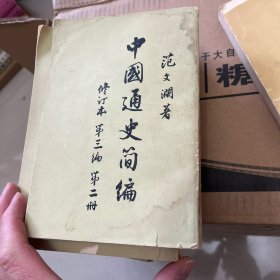 范文瀾著
中國通史简编
修订本 第三编 第二册
于大自
糖